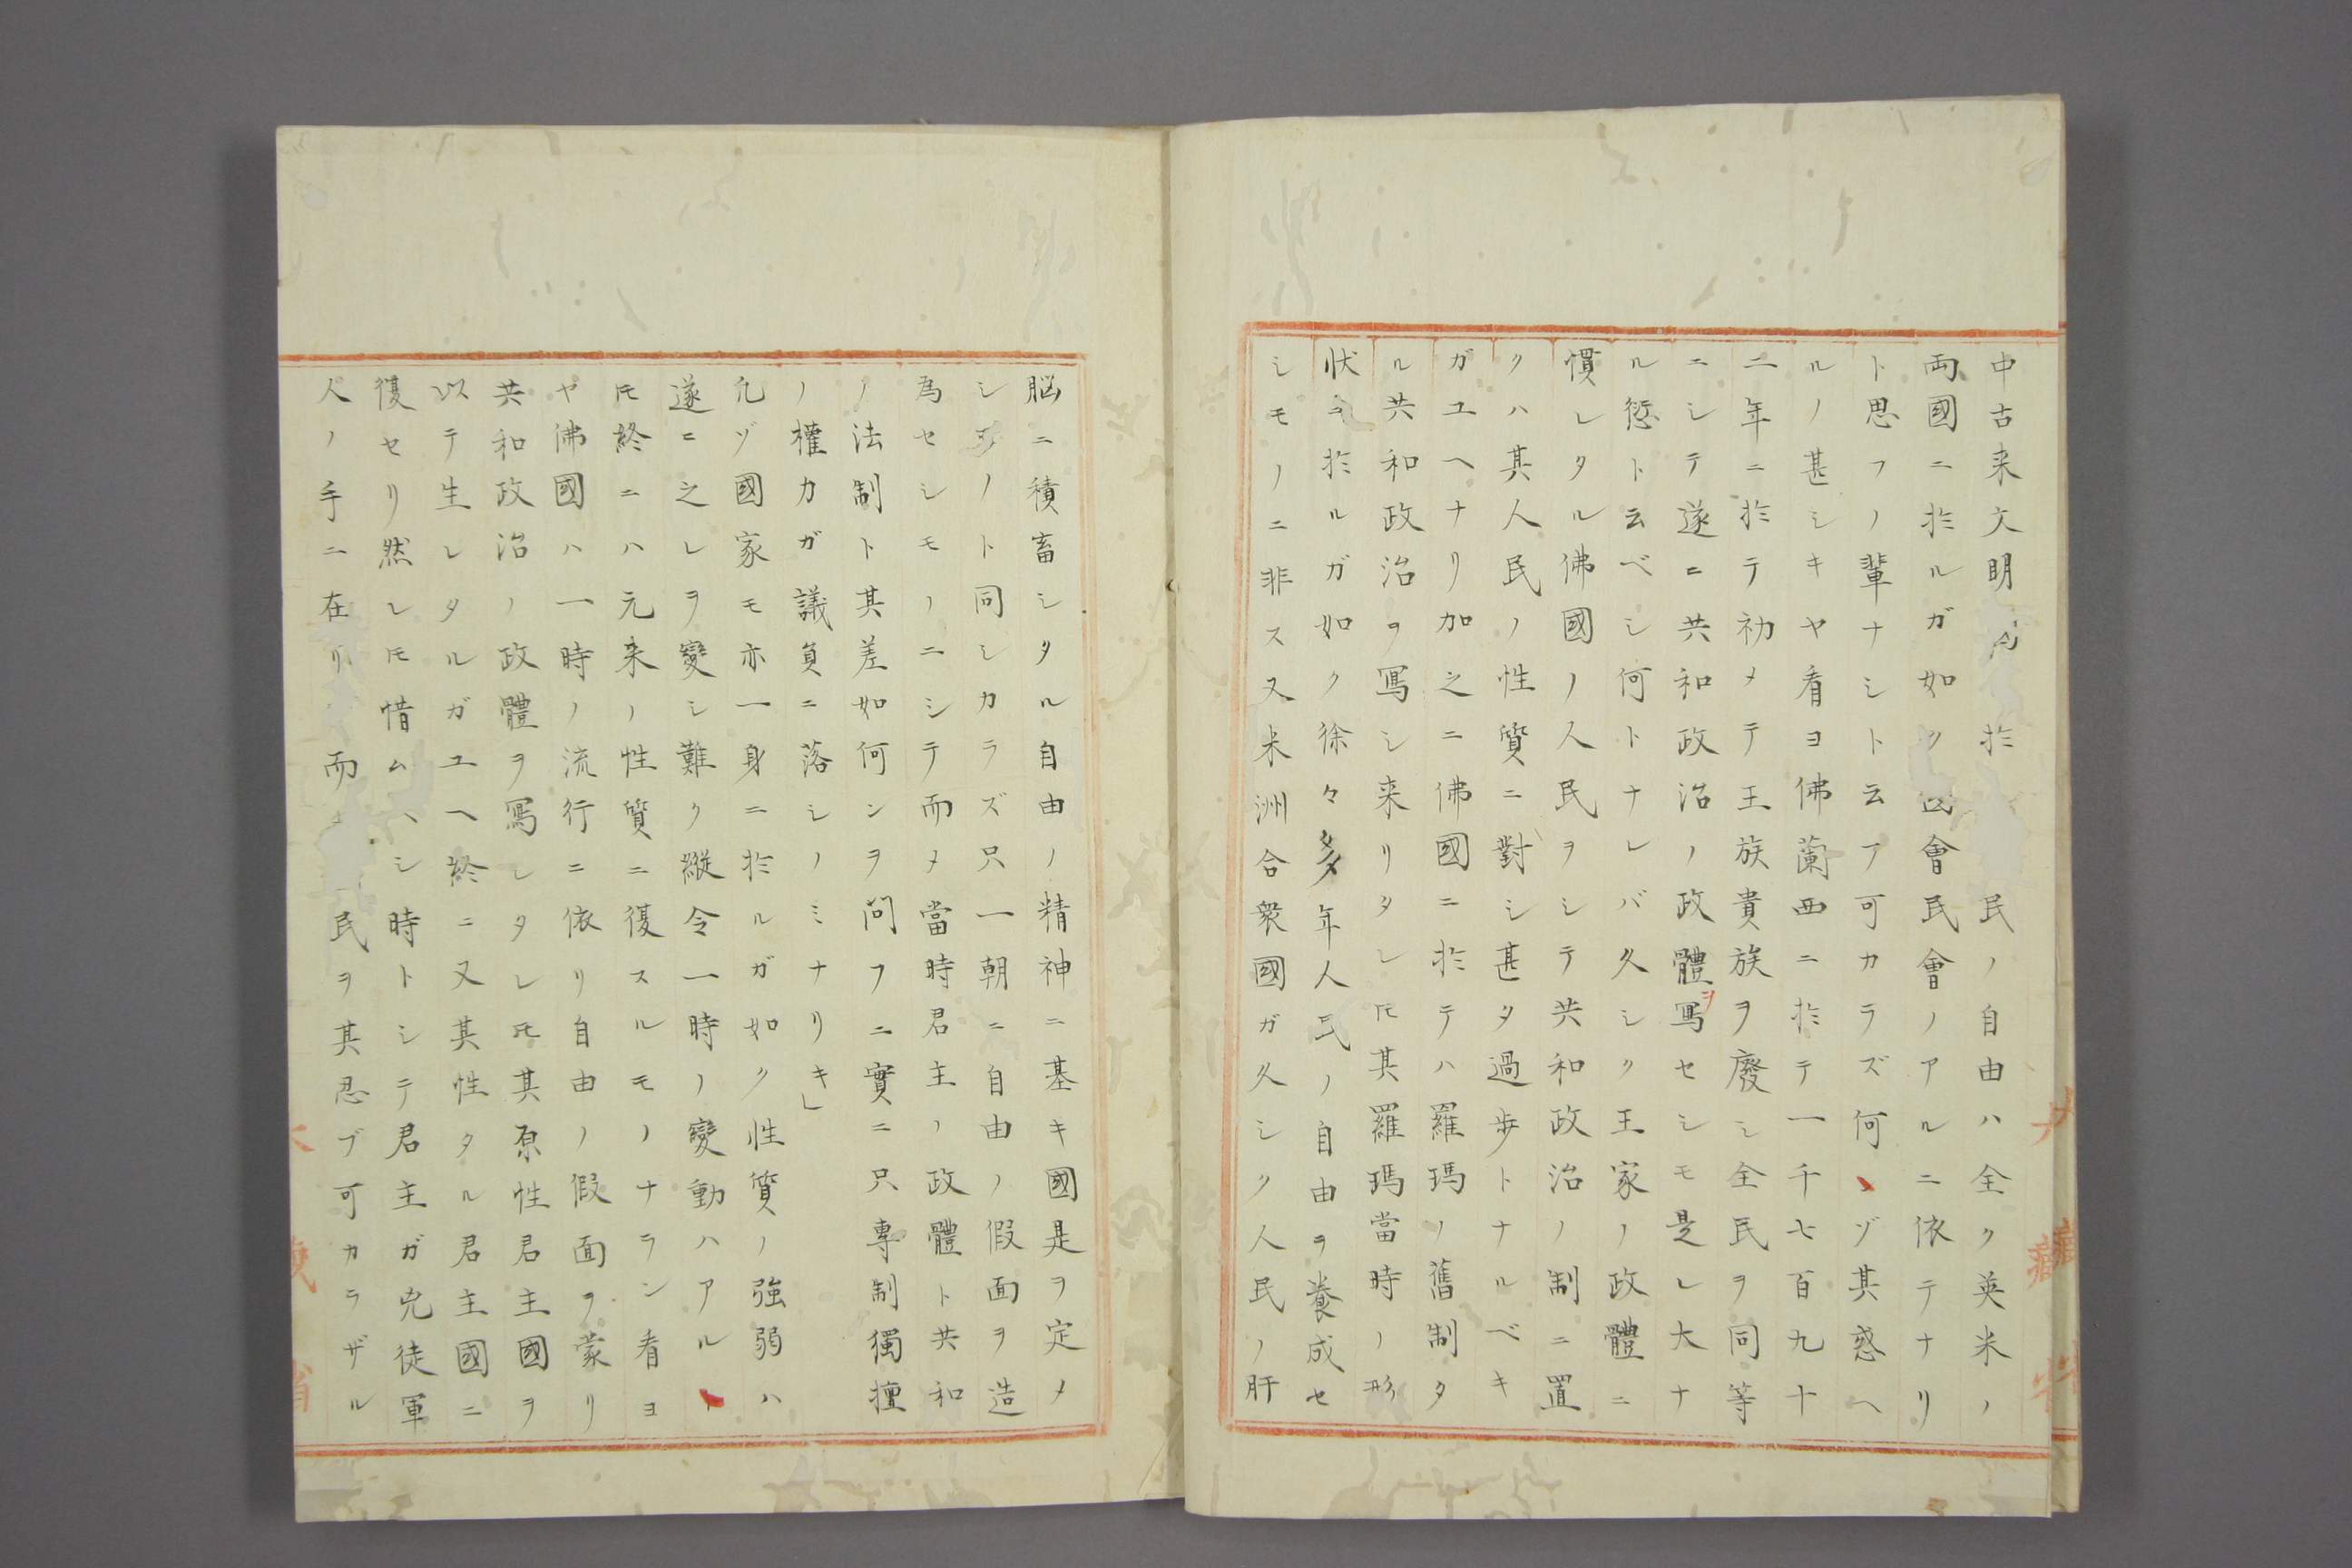 中古来文明 於 民ノ自由ハ全ク英米ノ
両國ニ於ルガ如ク 會民會ノアルニ依テナリ
ト思フノ輩ナシト云ア可カラズ何ヽゾ其惑ヘ
ルノ甚シキヤ看ヨ佛蘭西ニ於テ一千七百九十
二年ニ於テ初メテ王族貴族ヲ廢シ全民ヲ同等
ニシテ遂ニ共和政治ノ政體ヲ寫セシモ是レ大ナ
ル愆ト云ベシ何トナレバ久シク王家ノ政體ニ
慣レタル佛國ノ人民ヲシテ共和政治ノ制ニ置
クハ其人民ノ性質ニ對シ甚タ過歩トナルベキ
ガユヘナリ加之ニ佛國ニ於テハ羅瑪ノ舊制タ
ル共和政治ヲ寫シ来リタレ𪜈其羅瑪當時ノ形
状ニ於ルガ如ク徐々多年人民ノ自由ヲ養成セ
シモノニ非ス又米洲合衆國ガ久シク人民ノ肝
脳ニ積畜シタル自由ノ精神ニ基キ國是ヲ定メ
シ ノト同シカラズ只一朝ニ自由ノ假面ヲ造
為セシモノニシテ而メ當時君主ノ政體ト共和
ノ法制ト其差如何ンヲ問フニ實ニ只専制獨擅
ノ權力ガ議負ニ落シノミナリキ」
凡ゾ國家モ亦一身ニ於ルガ如ク性質ノ強弱ハ
遂ニ之レヲ變シ難ク縦令一時ノ變動ハアルト
𪜈終ニハ元来ノ性質ニ復スルモノナラン看ヨ
ヤ佛國ハ一時ノ流行ニ依リ自由ノ假面ヲ蒙リ
共和政治ノ政體ヲ寫シタレ𪜈其原性君主國ヲ
以テ生レタルガユヘ終ニ又其性タル君主國ニ
復セリ然レ𪜈惜ムヽシ時トシテ君主ガ兇徒軍
人ノ手ニ在リ 而 民ヲ其忍ブ可カラザル